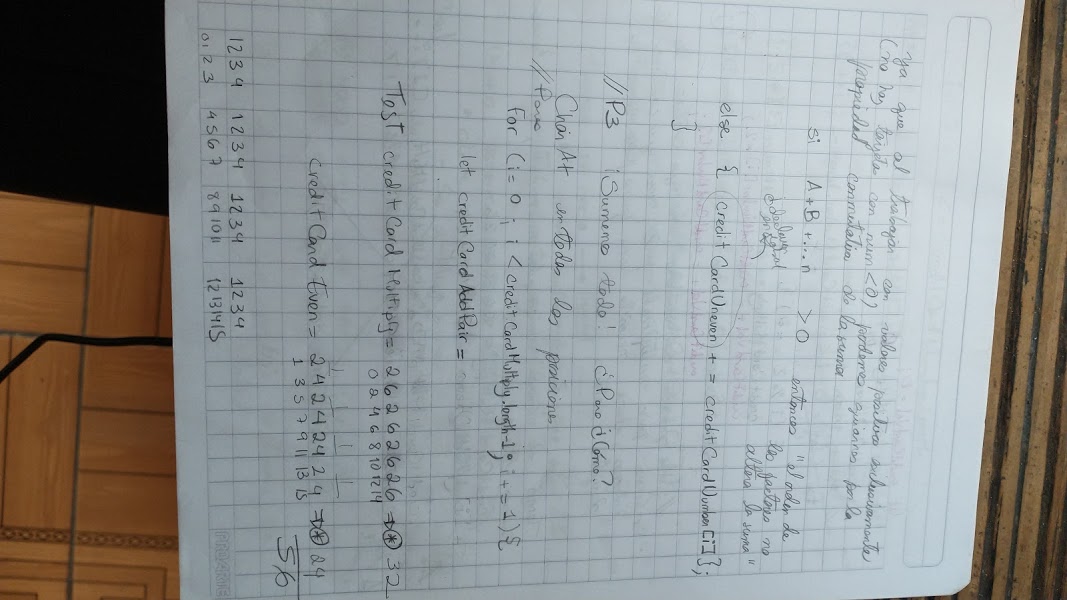 ya que al trabajar con valores positivos exclusivamente
(no hay tarjeta con num <0) podemos guiarnos por la
propiedad conmutativa de la suma
si A+B+...n >0 entonces "el orden de
los factores no
altera la suma"
declarar
en global
else { creditCardUneven += creditCardNumber[i]};
}
//P3 ¡Sumemos todo! ¿Para ¿Cómo?
Char At en todas las posiciones
//Pares
for (i=0 ; i < creditCardMultiply.length-1; i+=1){
let creditCardAddPair =
Test creditCardMultiply = 2 6 2 6 2 6 2 6 ⇒ * 32
0 2 4 6 8 10 12 14
creditCard Even = 2 4 2 4 2 4 2 4 ⇒ * 24
1 3 5 7 9 11 13 15
56
1234 1234 1234 1234
0123 4567 891011 12131415